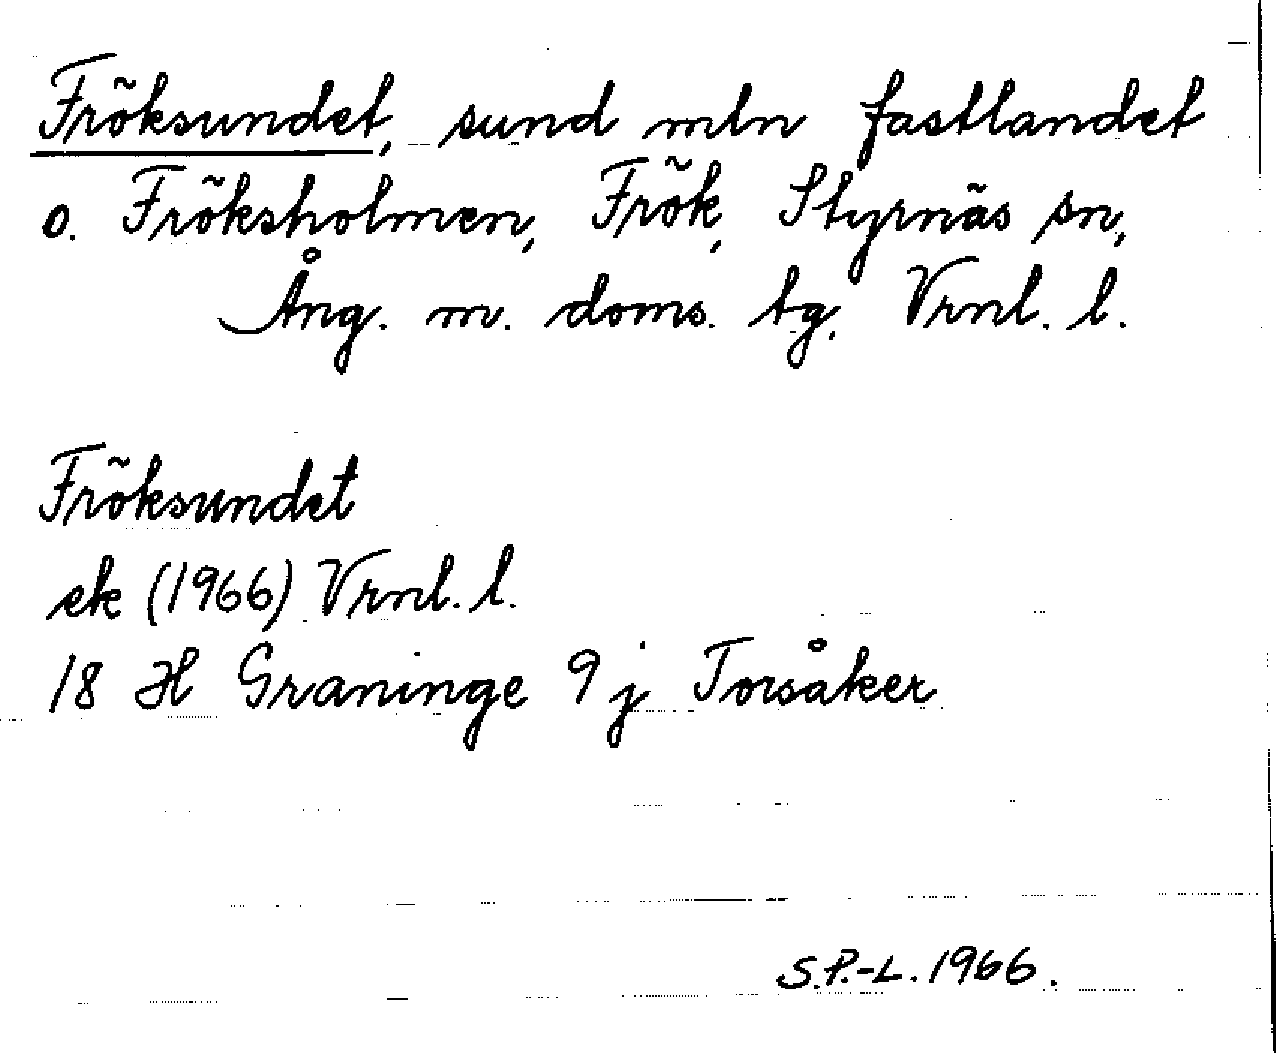 Fröksundet, sund mln fastlandet
o. Fröksholmen, Frök, Styrnäs sn,
Ång. m. doms. tg, Vrnl. l.
Fröksundet
ek (1966) Vrnl. l.
18 H Graninge 9 j Torsåker
S.P.-L. 1966.